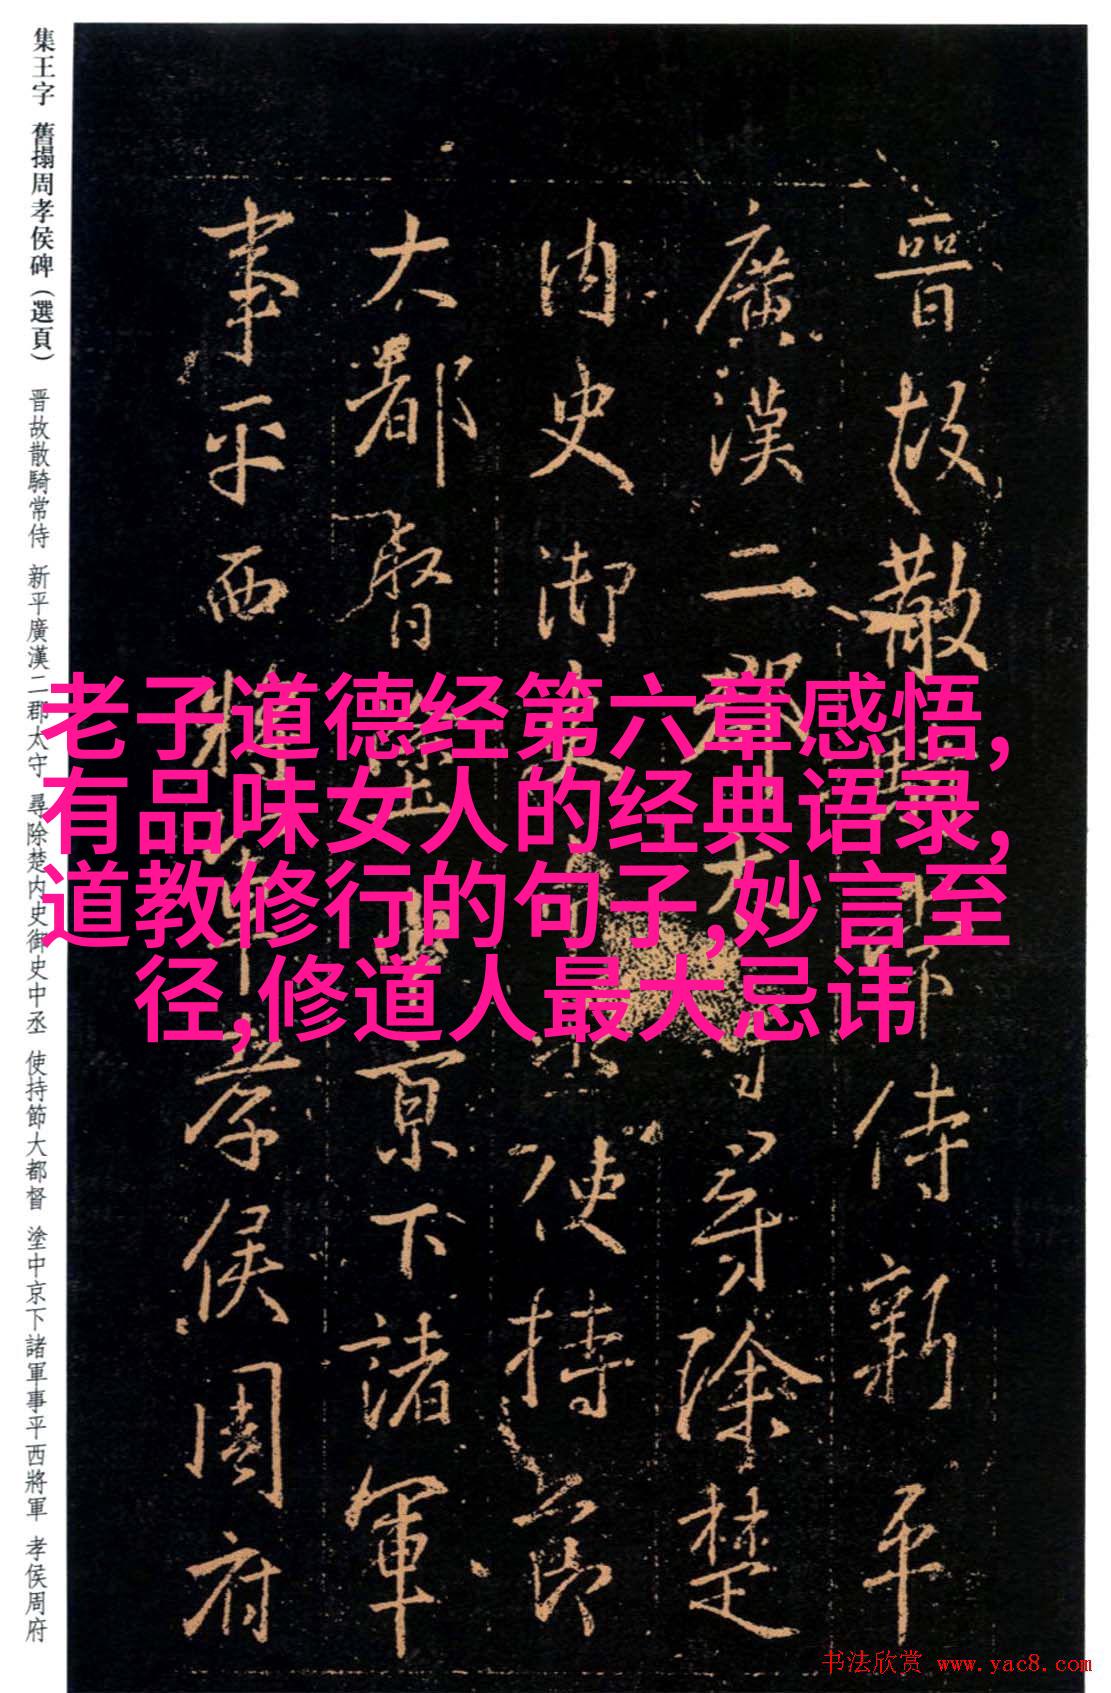 集王字 舊搨周孝侯碑(選頁) 晋故散騎常侍 新平廣漢二郡太守 尋除楚内史御史中丞 使持節大都督 塗中京下諸軍事平西將軍 孝侯周府
晉故散騎常侍新平
廣漢二郡太守尋除楚
内史御史中丞使持節
大都督塗中京下諸軍
事平西將軍孝侯周府
老子道德经第六章感悟,
有品味女人的经典语录,
道教修行的句子,妙言至
径,修道人最大忌讳
书法欣赏 www.yac8.com